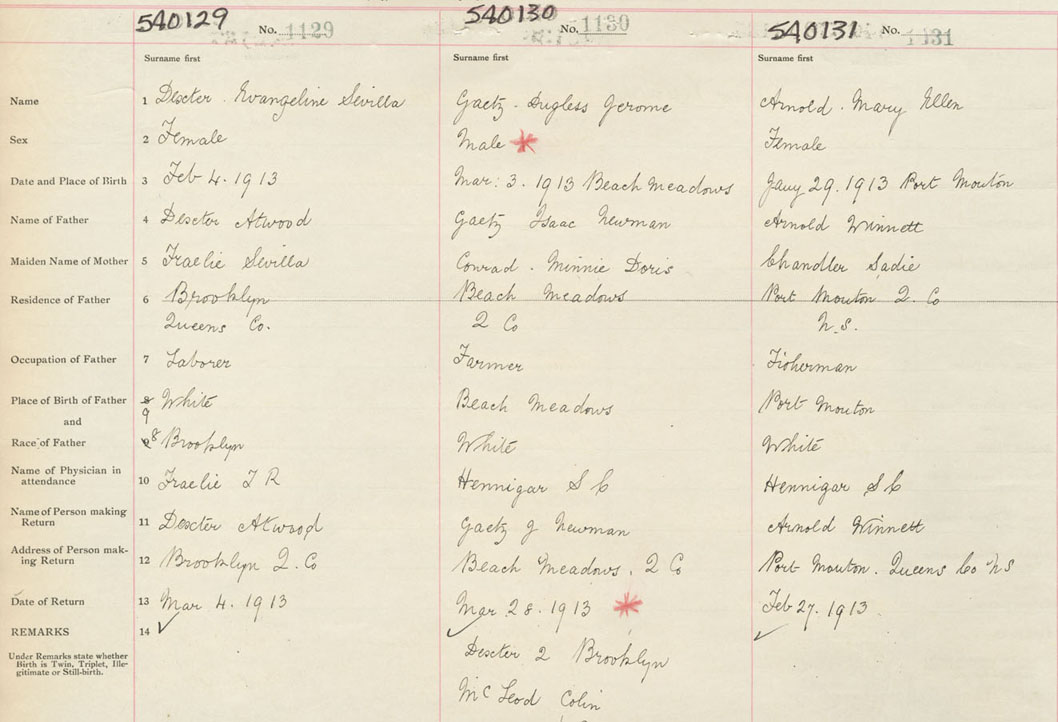 5A0129 No. 1129 5A0130 No. 1130 5A0131 No. 1131
Surname first Surname first Surname first
Name 1 Dexter . Evangeline Sevilla Gaetz - Dugless Gerome Arnold . Mary Ellen
Sex 2 Female Male * Female
Date and Place of Birth 3 Feb 4. 1913 Mar. 3. 1913 Beach Meadows Jany 29. 1913 Port Mouton
Name of Father 4 Dexter Atwood Gaetz Isaac Newman Arnold Winnett
Maiden Name of Mother 5 Fraelic Sevilla Conrad - Minnie Doris Chandler Sadie
Residence of Father 6 Brooklyn Beach Meadows Port Mouton Q. Co
Queens Co. Q Co N.S.
Occupation of Father 7 Laborer Farmer Fisherman
Place of Birth of Father 8 9 White Beach Meadows Port Mouton
and
Race of Father 9 8 Brooklyn White White
Name of Physician in attendance 10 Fraelic T R Hennigar S C Hennigar S C
Name of Person making Return 11 Dexter Atwood Gaetz J Newman Arnold Winnett
Address of Person making Return 12 Brooklyn Q. Co Beach Meadows . Q Co Port Mouton . Queens Co N S
Date of Return 13 Mar 4. 1913 Mar 28. 1913 * Feb 27. 1913.
REMARKS 14 ✓ ✓ ✓
Under Remarks state whether
Birth is Twin, Triplet, Ille-
gitimate or Still-birth.
Dexter Q Brooklyn
McLeod Colin